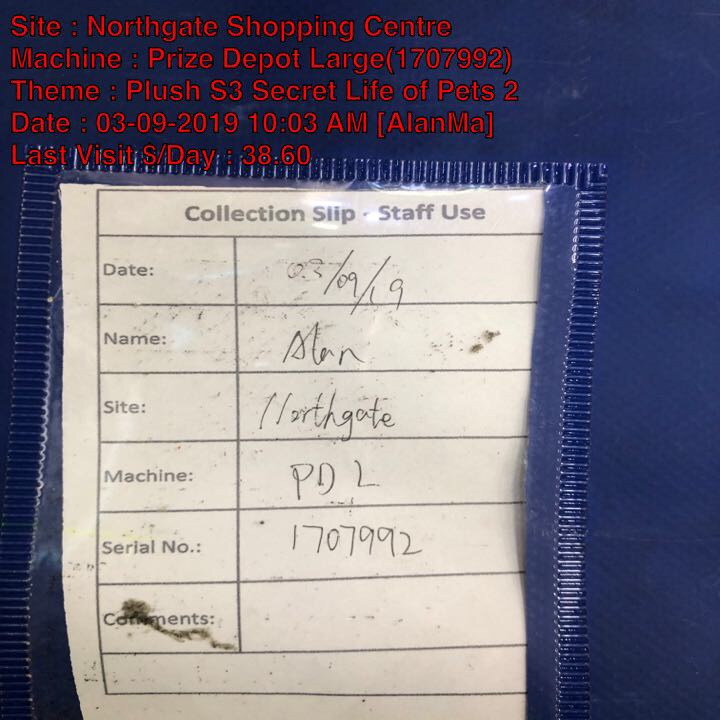 Site : Northgate Shopping Centre
Machine : Prize Depot Large(1707992)
Theme : Plush S3 Secret Life of Pets 2
Date : 03-09-2019 10:03 AM [AlanMa]
Last Visit $/Day : 38.60
Collection Slip - Staff Use
Date: 03/09/19
Name: Alan
Site: Northgate
Machine: PD L
Serial No.: 1707992
Comments: